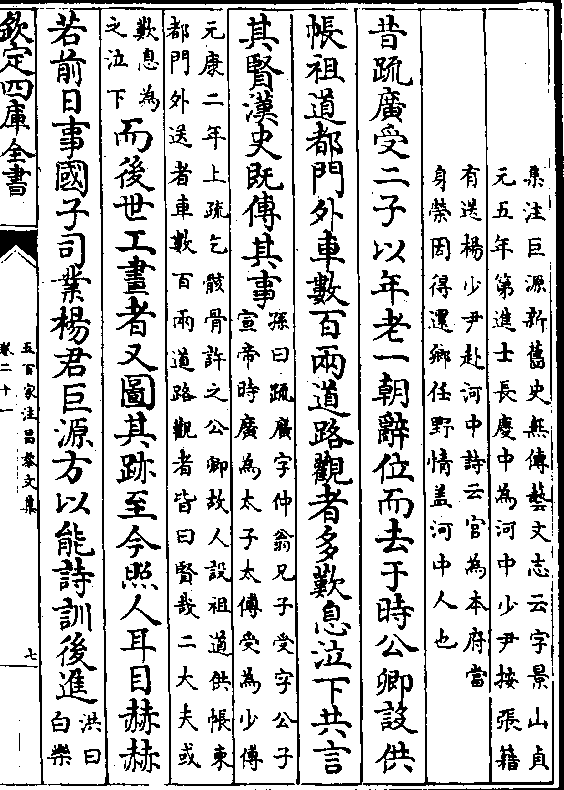 集注巨源新舊史無傳藝文志云字景山貞
元五年第進士長慶中為河中少尹按張籍
有送楊少尹赴河中詩云官為本府當
身榮因得還鄉任野情盖河中人也
昔疏廣受二子以年老一朝辭位而去于時公卿設供
帳祖道都門外車數百兩道路觀者多歎息泣下共言
其賢漢史既傳其事
孫曰疏廣字仲翁兄子受字公子
宣帝時廣為太子太傅受為少傅
元康二年上疏乞骸骨許之公卿故人設祖道供帳東
都門外送者車數百兩道路觀者皆曰賢哉二大夫或
歎息為
之泣下
而後世工畫者又圖其跡至今照人耳目赫赫
若前日事國子司業楊君巨源方以能詩訓後進
洪曰
白樂
欽定四庫全書
五百家注昌黎文集
卷二十一
七